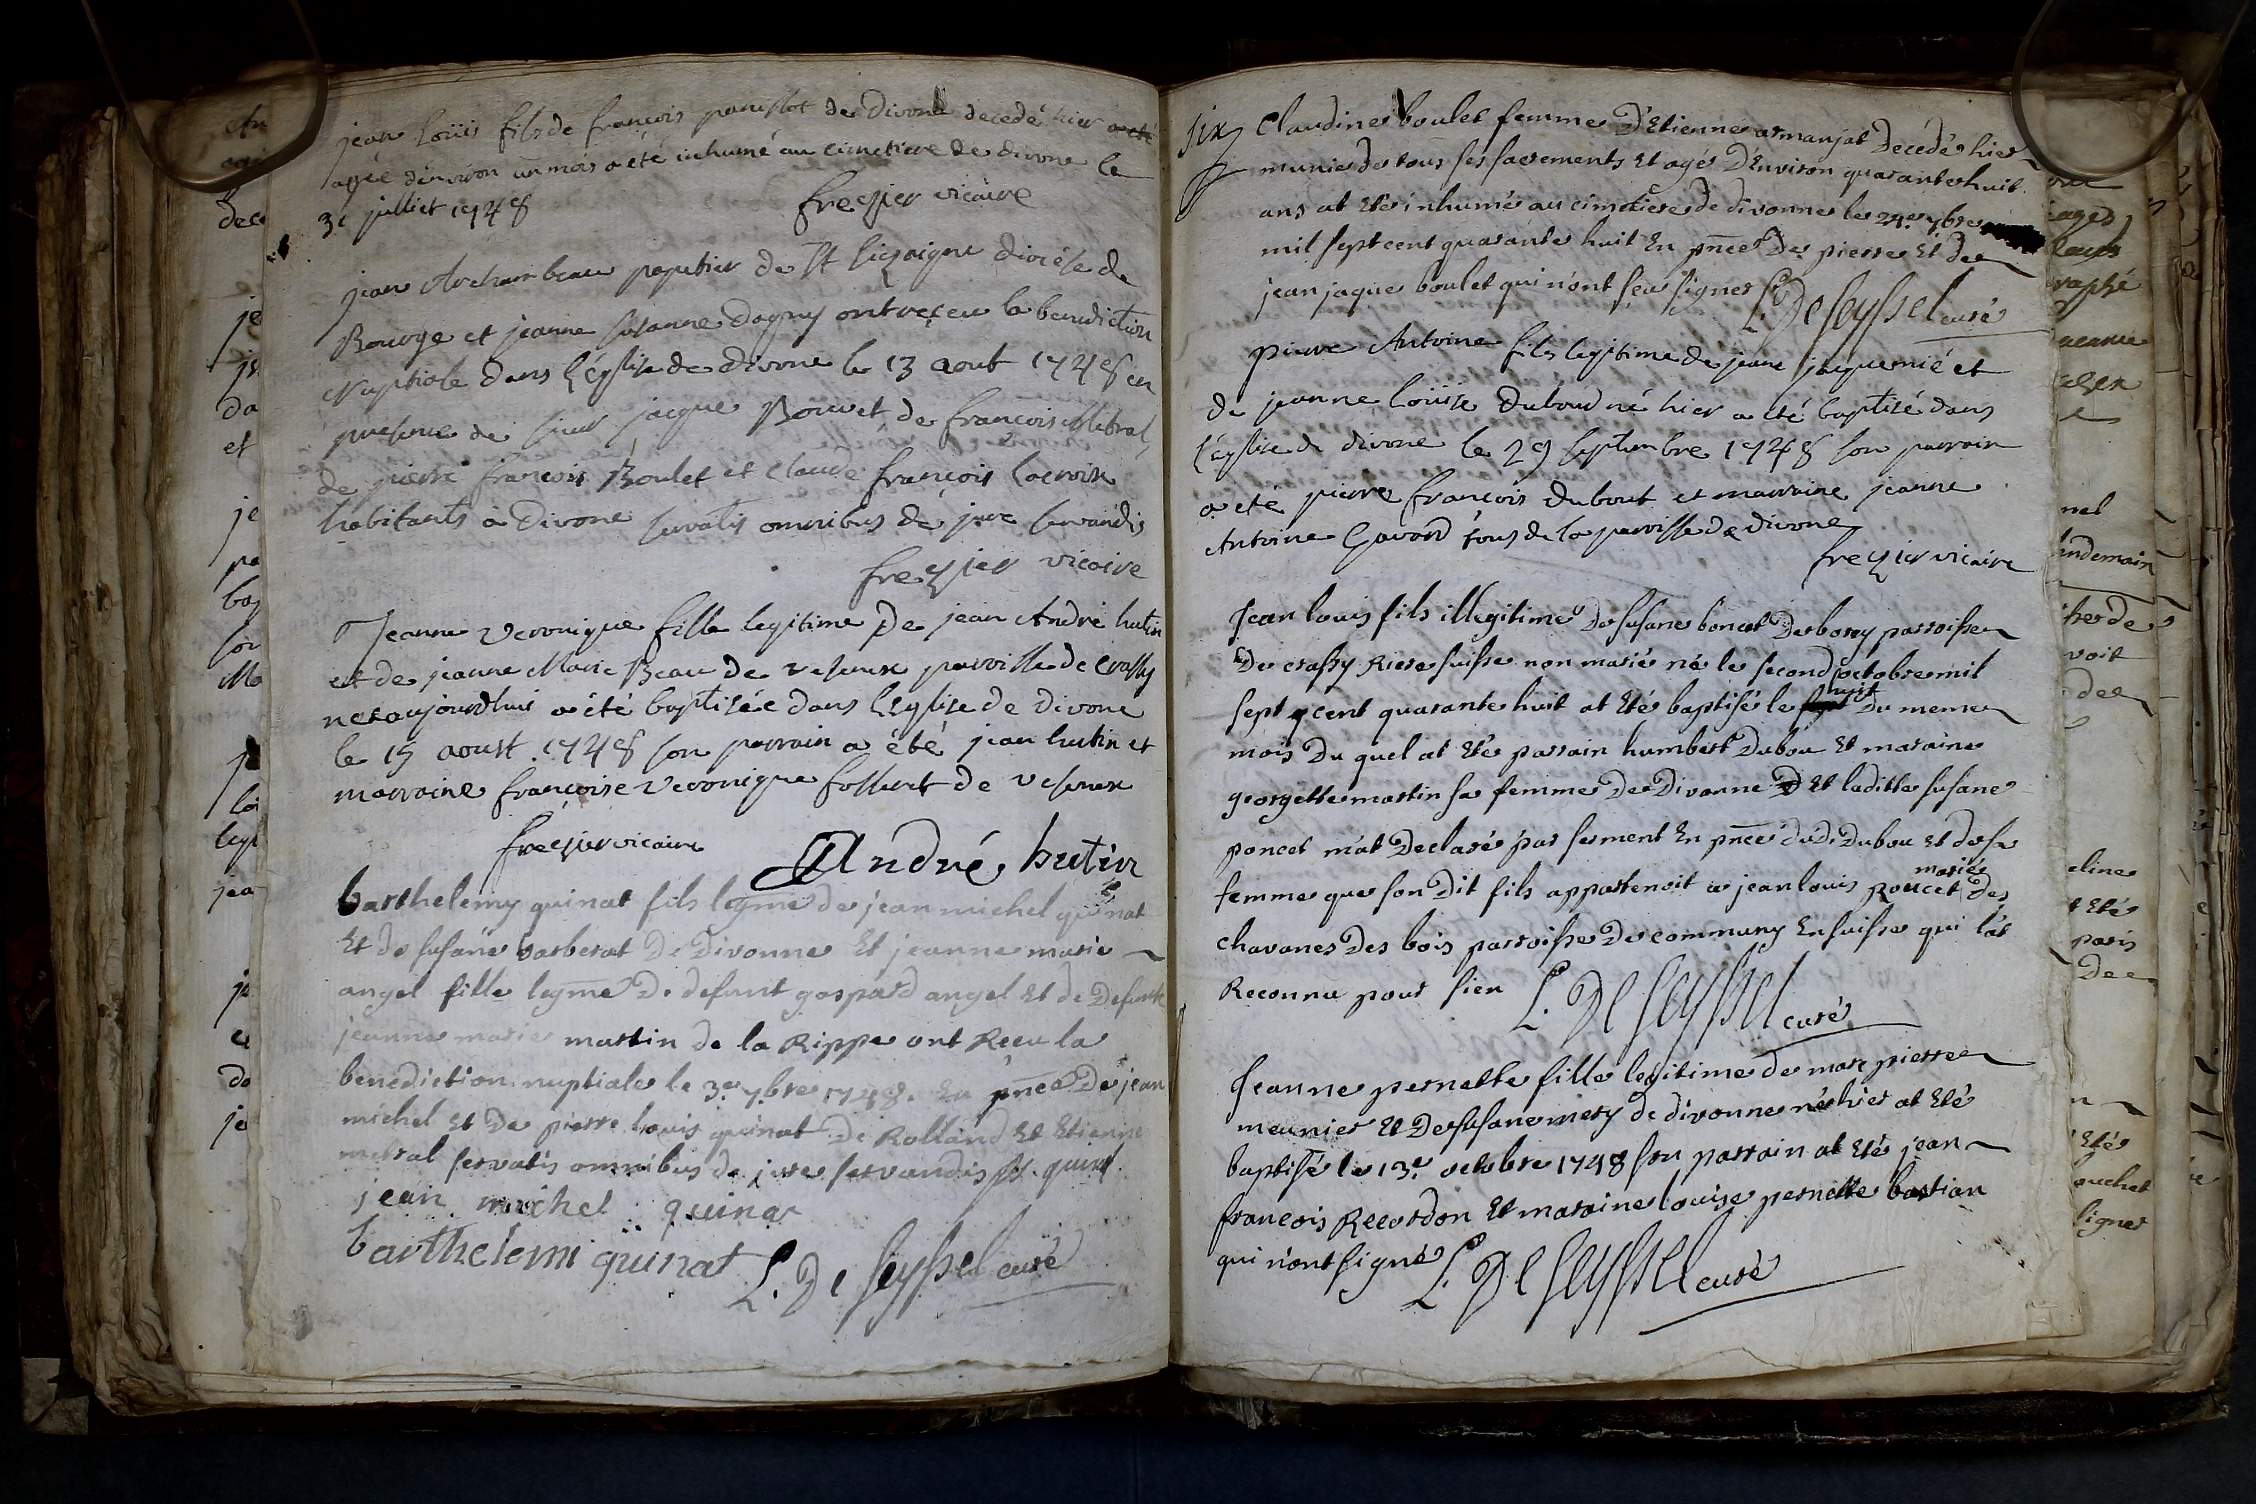 jean loüis fils de françois ponissot de Divone decedé hier a eté
agée d'environ un mois a été inhumé au cimetiere de divone le
31 julliet 1748 frezier vicaire
jean Archambeau papetier de St diocése de
et jeanne susanne dagny ont reçeu la benediction
Nuptiale dans l'église de divone le 13 aout 1748 en
presence de sieur jacque Bouvet de françois Metral,
de pierre françois Boulet et claude françois lacroix
habitants à Divone servatis omnibus de jure servandis
frezier vicaire
Jeanne veronique fille legitime de jean André hutin
et de jeanne Marie Beau de vesenex parroisse de Crassy
née aujourdhui a été baptisée dans l'Eglise de Divone
le 15 aoust 1748 son parrain a été jean hutin et
marraine françoise veronique de vesenex
frezier vicaire
André hutin
barthelemy quinat fils legme de jean michel quinat
Et de susane barberat De Divonne Et jeanne marie
angel fille legme De defunt gaspard angel Et de Defunte
jeanne marie martin de la Rippe ont Receu la
benediction nuptiale le 3e 7bre 1748. En pnce De jean
michel Et De pierre louis quinat De Rolland Et Etienne
metral servatis omnibus de jure servandis
jean michel quinat
barthelemi quinat L. De Seyssel curé
six Claudine boulet femme D'Etienne armanjat Decedé hier
munie de tous ses sacrements Et agée D'Environ quarante huit
ans at Eté inhumé au cimetiere de divonne le 24e 7bre
mil sept cent quarante huit En pnce De pierre Et De
jean jaque boulet qui n'ont seu signer L. De Seyssel curé
pierre Antoine fils legitime de jean jaquemié et
de jeanne loüise dubout né hier a été baptisé dans
l'église de divone le 29 septembre 1748 son parrain
a eté pierre françois dubout et marraine jeanne
Antoine Gavard tous de la parroisse de divone
frezier vicaire
Jean louis fils illegitime De susane poncet De borey parroisse
De crassy Riere suisse non marié né le second octobre mil
sept cent quarante huit at Eté baptisé le huit Du meme
mois Du quel at Eté parrain humbert Dubou Et maraine
georgette martin sa femme De Divonne Et laditte susane
poncet m'at Declaré par serment En pnce dud. Dubou Et de sa
femme que son Dit fils appartenoit a jean louis Roucet marié Des
chavanes Des bois parroisse De commugny En suisse qui l'at
Reconnu pour sien L. De Seyssel curé
Jeanne pernette fille legitime de marc pierre
meunier Et De susane mery de divonne né hier at Eté
baptisé le 13e octobre 1748 son parrain at Eté jean
francois Recordon Et maraine louise pernette bastian
qui n'ont signé L. De Seyssel curé